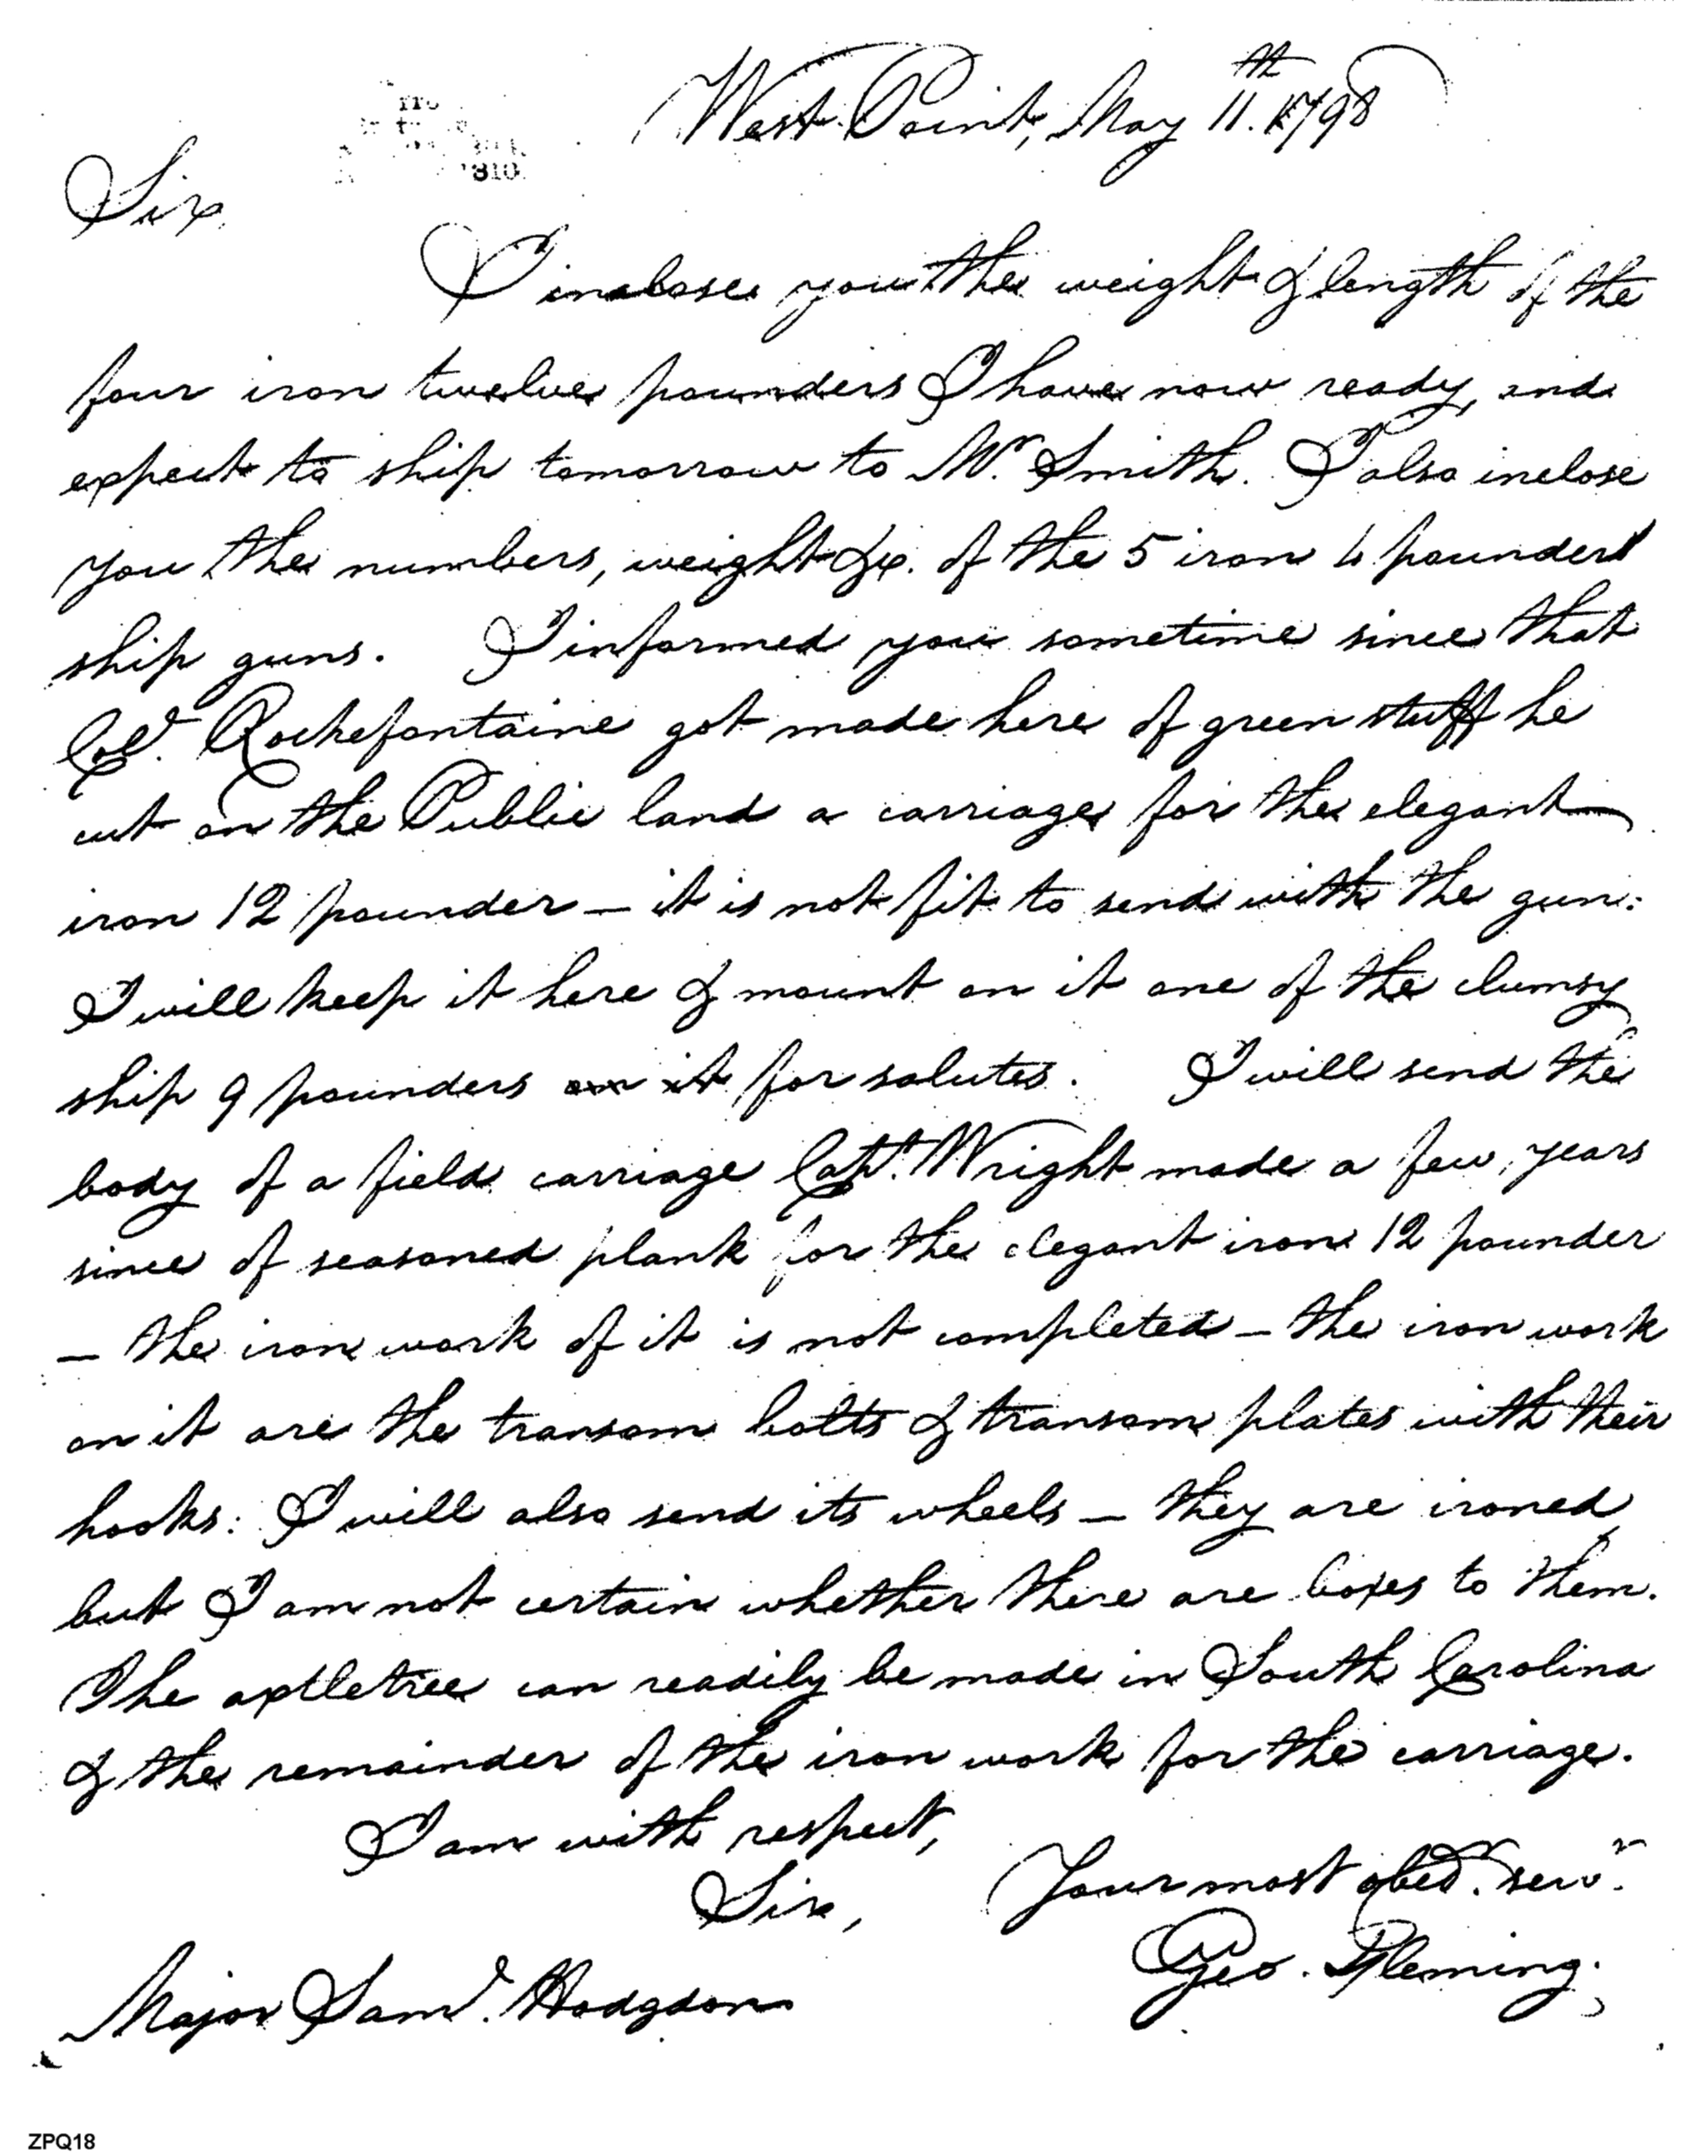 West Point, May 11.th 1798
Sir,
I inclose you the weight & length of the
four iron twelve pounders I have now ready, and
expect to ship tomorrow to Mr. Smith. I also inclose
you the numbers, weight &c. of the 5 iron 4 pounders
ship guns. I informed you sometime since that
Col. Rochefontaine got made here of green stuff he
cut on the Public land a carriage for the elegant
iron 12 pounder — it is not fit to send with the gun:
I will keep it here & mount on it one of the clumsy
ship 9 pounders on it for salutes. I will send the
body of a field carriage Capt. Wright made a few years
since of seasoned plank for the elegant iron 12 pounder
— the iron work of it is not completed — the iron work
on it are the transom bolts & transom plates with their
hooks: I will also send its wheels — they are ironed
but I am not certain whether there are boxes to them.
The axtletree can readily be made in South Carolina
& the remainder of the iron work for the carriage.
I am with respect,
Sir, Your most obed.r serv.r
Geo. Fleming.
Major Saml. Hodgdon
ZPQ18